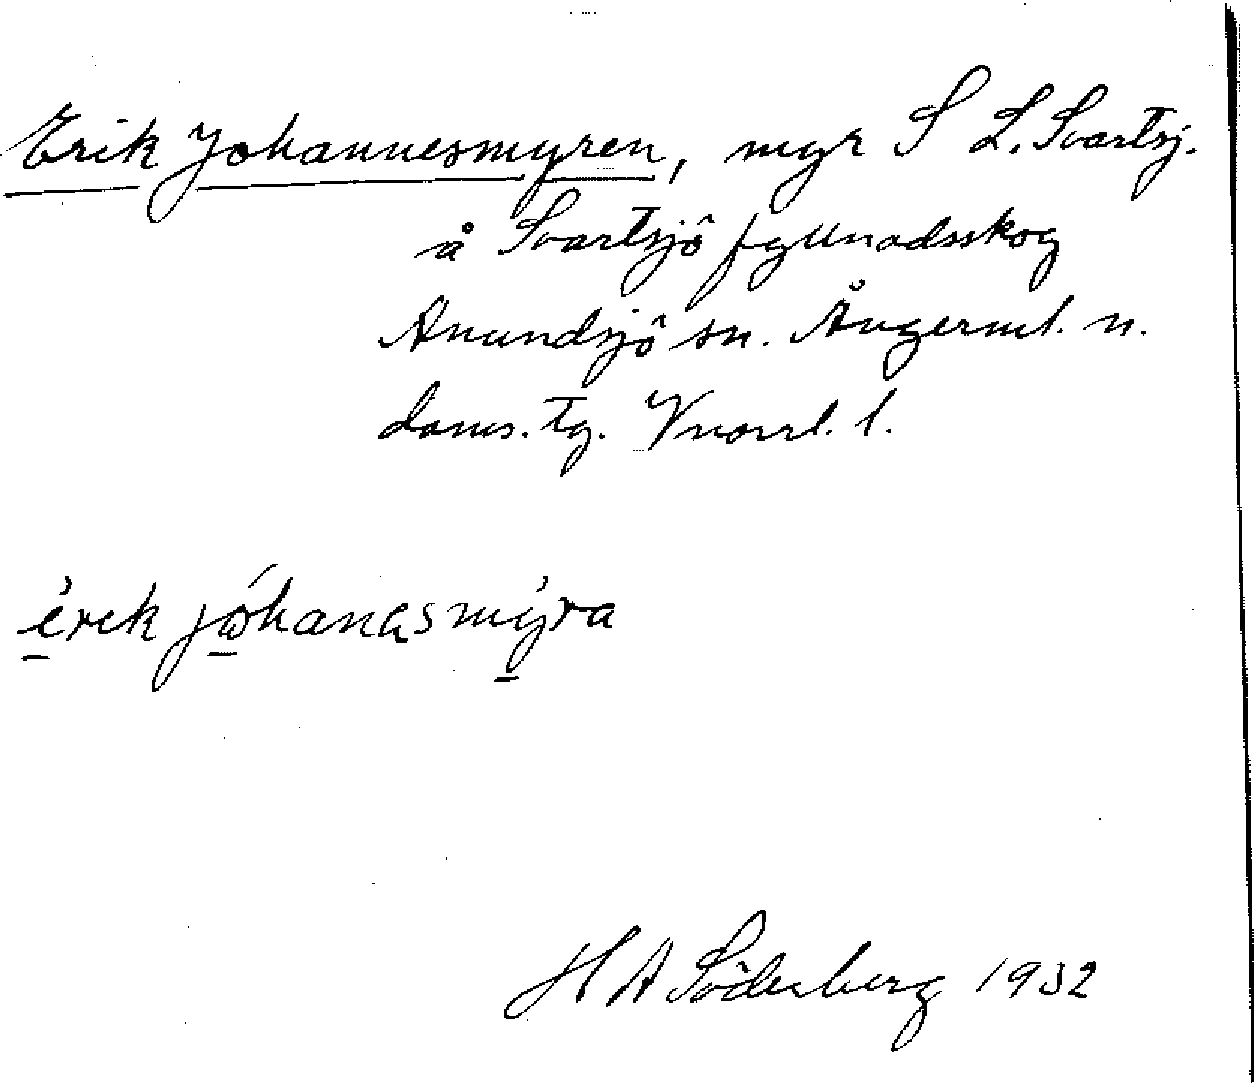 Erik Johannesmyren, myr S L. Svartsj.
å Svartsjö byunadsskog
Anundsjö sn. Ångerml. n.
doms. tg. Vnorrl. l.
érek jóhanesmýra
H A Söderberg 1932